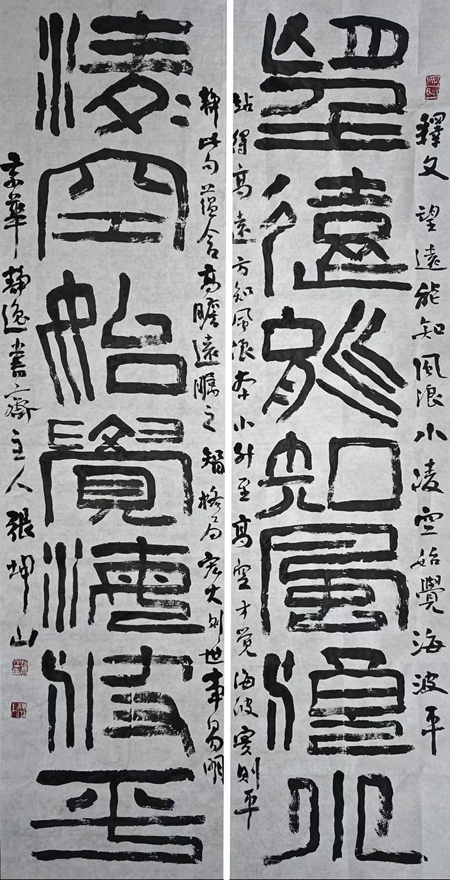 釋文望遠能知風浪小凌空始覺海波平
望遠能知風浪小
站得高遠方知風浪本小升至高空才覺海波實則平
靜此句蕴含高瞻遠矚之智格局宏大則世事易明
凌空始覺海波平
京華靜逸書齋主人張坤山